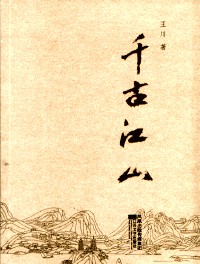 王川 著
千古江山